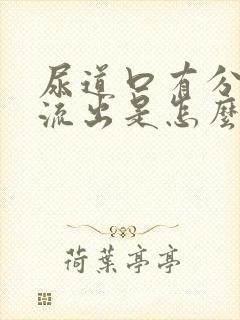 尿道口有分
流出是怎麼
荷葉亭亭